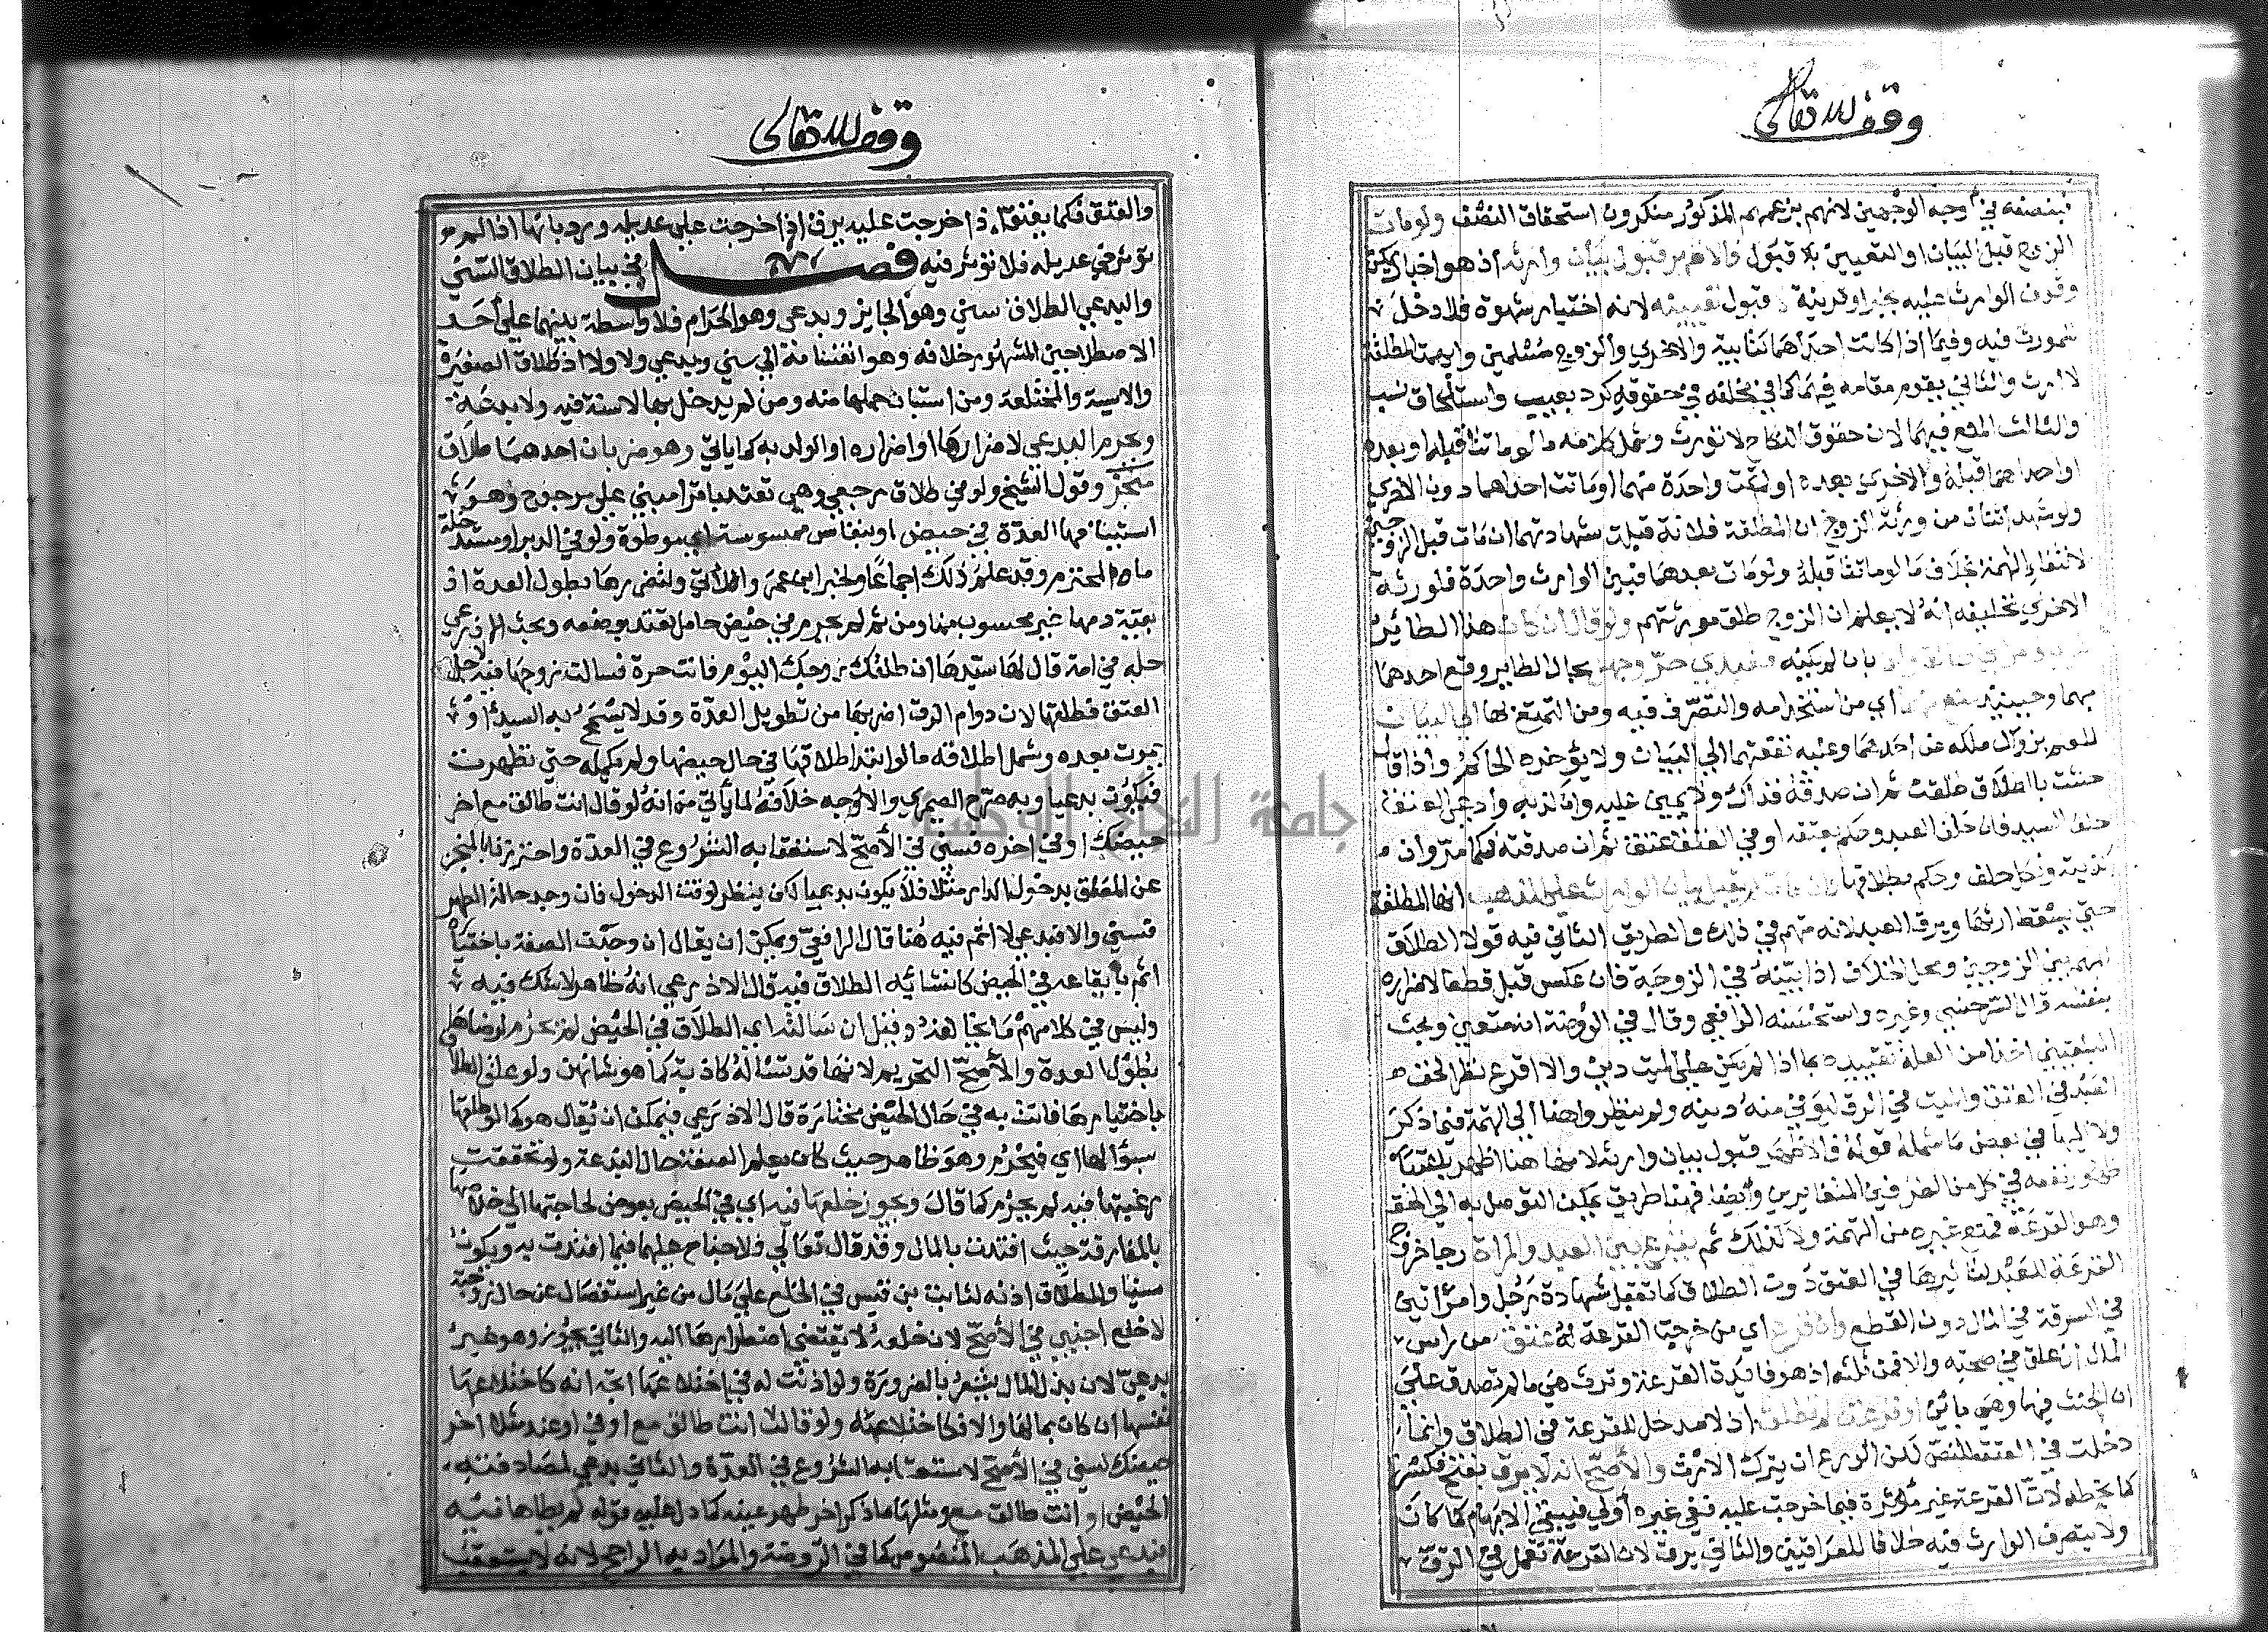 وقف لله تعالى
بنصفه في أوجه الوجهين لانهم بزعمهم المذكور منكرون استحقاق النصف ولو مات
الزوج قبل البيان او التعيين بلا قبول فالاظهر قبول بيان وارثه اذ هو اخبار يمكن
وقوف الوارث عليه بخبر او قرينة قبول تعيينه لانه اختيار شهوة فلا دخل
للوارث فيه وفيما اذا كانت احداهما كتابية والاخرى والزوج مسلمين وابهمت المطلقة
لا ارث والثاني يقوم مقامه فيهما كما في يخلفه في حقوقه كرد بعيب واستلحاق نسب
والثالث المنع فيهما لان حقوق النكاح لا تورث وشمل كلامه ما لو ماتتا قبله او بعده
او احداهما قبله والاخرى بعده او لم تمت واحدة منهما او ماتت احداهما دون الاخرى
ولو شهد اثنان من ورثة الزوج ان المطلقة فلانة قبلت شهادتهما ان مات قبل الزوجتين
لانتفاء التهمة بخلاف ما لو ماتتا قبله ولو مات بعدهما فبين الوارث واحدة فلورثة
الاخرى تحليفه انه لا يعلم ان الزوج طلق مورثتهم ولو قال ان كان هذا الطائر
بان لم يكنه فعبدي حر وجهل حال الطاير وقع احدهما
بهما وحينئذ منع اي من استخدامه والتصرف فيه ومن التمتع بها الى البيان
للعلم بزوال ملكه عن احدهما وعليه نفقتهما الى البيان ولا يؤجره الحاكم واذا قال
حنثت بالطلاق طلقت ثم ان صدقه فذاك ولا يمين عليه وان كذبه وادعى العتق
حلف السيد فان حلف العبد وحكم بعتقه او في العتق عتق ثم ان صدقته فكما مر وان
كذبته ونكل حلفت وحكم بطلاقها انها المطلقة
حتى يسقط ارثها ويرق العبد لانه متهم في ذلك والطريق الثاني فيه قولا الطلاق
المبهم بين الزوجين ومحل الخلاف اذا بينه في الزوجة فان عكس قبل قطعا لاضراره
بنفسه قال السرخسي وغيره واستحسنه الرافعي وقال في الروضة انه متعين وبحث
البلقيني اخذا من العلة تقييده بما اذا لم يكن على الميت دين والا اقرع نظرا لحق
العبد في العتق والميت في الرق ليوفى منه دينه ولم ينظروا هنا الى التهمة فيما ذكر
ولا اليها في بعض ما شمله قوله فالاظهر قبول بيان وارثه لانها هنا اظهر
ظهور نفعه في كل من الطرفين المتغايرين وايضا فهنا طريق يمكن التوصل به الى الحق
وهو القرعة فمنع غيره من التهمة ولا كذلك ثم بل يقرع بين العبد والمراة رجا خروج
القرعة للعبد لتاثيرها في العتق دون الطلاق كما تقبل شهادة رجل وامراتين
في السرقة في المال دون القطع فان قرع اي من خرجت القرعة له عتق من راس
المال ان علق في صحته والا فمن ثلثه اذ هو فائدة القرعة وترث هي ما لم تصدق على
ان الحنث فيها وهي بائن او قرعت لم تطلق اذ لا مدخل للقرعة في الطلاق وانما
دخلت في العتق للنص لكن الورع ان يترك الارث والاصح انه لا يرق بفتح فكسر
كما بخطه لان القرعة غير مؤثرة فيما خرجت عليه ففي غيره اولى فيبقى الابهام كما كان
ولا يتصرف الوارث فيه خلافا للعراقيين والثاني يرق لان القرعة تعمل في الرق
وقف لله تعالى
والعتق فكما يعتق اذا خرجت عليه يرق اذا خرجت على عديله ورد بانها اذا لم
تؤثر في عديله فلا تؤثر فيه فصل في بيان الطلاق السني
والبدعي الطلاق سني وهو الجايز وبدعي وهو الحرام فلا واسطة بينهما على احد
الاصطلاحين المشهور خلافه وهو انقسامه الى سني وبدعي ولا ولا اذ طلاق الصغيرة
والايسة والمختلعة ومن استبان حملها منه ومن لم يدخل بها لا سنة فيه ولا بدعة
ويحرم البدعي لاضرارها او اضراره او الولد به كما ياتي وهو ضربان احدهما طلاق
منجز وقول الشيخ ولو في طلاق رجعي وهي تعتد باقراء مبني على مرجوح وهو
استينافها العدة في حيض او نفاس ممسوسة اي موطوة ولو في الدبر او مستدخلة
ماءه المحترم وقد علم ذلك اجماعا ولخبر ابن عمر والاتي ولتضررها بطول العدة اذ
بقية دمها غير محسوب منها ومن ثم لم يحرم في حيض حامل تعتد بوضعه وبحث الاذرعي
حله في امة قال لها سيدها ان طلقك زوجك اليوم فانت حرة فسالت زوجها فيه لاجل
العتق فطلقها لان دوام الرق اضر بها من تطويل العدة وقد لا يسمح به السيد او
يموت بعده وشمل اطلاقه ما لو ابتدا طلاقها في حال حيضها ولم يكمله حتى تطهرت
فيكون بدعيا وبه صرح الصيمري والاوجه خلافه لما ياتي من انه لو قال انت طالق مع اخر
حيضك او في اخره فسني في الاصح لاستعقابه الشروع في العدة واحترز بالمنجز
عن المعلق بدخول الدار مثلا فلا يكون بدعيا لكن ينظر لوقت الدخول فان وجد حالة الطهر
فسني والا فبدعي لا اثم فيه هنا قال الرافعي ويمكن ان يقال ان وجدت الصفة باختياره
اثم بايقاعه في الحيض كانشائه الطلاق فيه قال الاذرعي انه ظاهر لا شك فيه
وليس في كلامهم ما يخالفه وقيل ان سالته اي الطلاق في الحيض لم يحرم لرضاها
بطول العدة والاصح التحريم لانها قد تساله كاذبة كما هو شانهن ولو علق الطلاق
باختيارها فاتت به في حال الحيض مختارة قال الاذرعي فيمكن ان يقال هو كما لو طلقها
بسؤالها اي فيحرم وهو ظاهر حيث كان يعلم الصفة حال البدعة ولو تحققت
رغبتها فيه لم يحرم كما قال ويجوز خلعها فيه اي في الحيض بعوض لحاجتها الى خلاصها
بالمفارقة حيث افتدت بالمال وقد قال تعالى فلا جناح عليهما فيما افتدت به ويكون
سنيا ولاطلاق اذنه لثابت بن قيس في الخلع على مال من غير استفصال عن حال زوجته
لا خلع اجنبي في الاصح لان خلعه لا يقتضي اضطرارها اليه والثاني يجوز وهو غير
بدعي لان بذل المال يشعر بالضرورة ولو اذنت له في اختلاعها اتجه انه كاختلاعها
نفسها ان كان بمالها والا فكاختلاعه ولو قال انت طالق مع او في او عند مثلا اخر
حيضك فسني في الاصح لاستعقابه الشروع في العدة والثاني بدعي لمصادفته
الحيض او انت طالق مع ومثلها ما ذكر اخر طهر عينه كما دل عليه قوله لم يطاها فيه
فبدعي على المذهب المنصوص كما في الروضة والمراد به الراجح لانه لا يستعقب
جامعة النجاح الوطنية